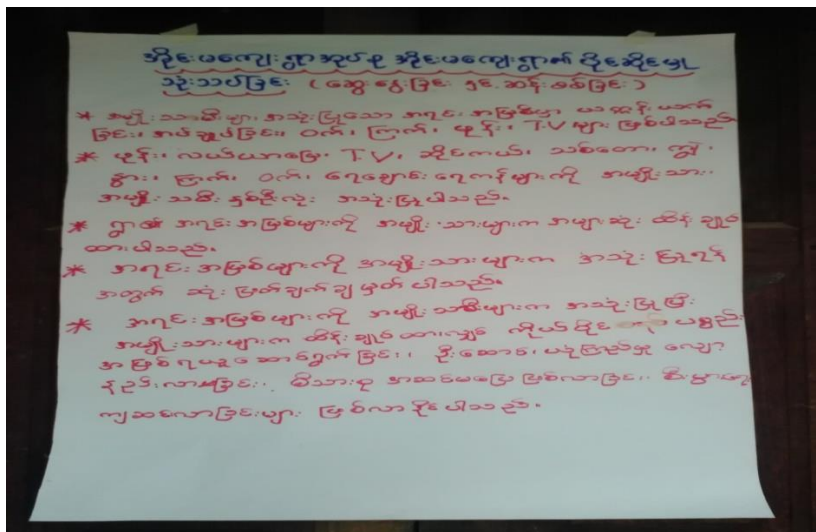 အိုင်းမကျေးရွာအုပ်စု အိုင်းမကျေးရွာ၏ ပိုင်ဆိုင်မှု
သုံးသပ်ခြင်း (ဆွေးနွေးခြင်း နှင့် ဆန်းစစ်ခြင်း)
* အမျိုးသမီးများ အသုံးပြုသော အရင်းအမြစ်မှာ ယက္ကန်းယက်
ခြင်း၊ အပ်ချုပ်ခြင်း၊ ဝက်၊ ကြက်၊ ဖုန်း၊ TV များ ဖြစ်ပါသည်
* ဖုန်း၊ လယ်ယာမြေ၊ TV၊ ဆိုင်ကယ်၊ သစ်တော၊ ကျွဲ၊
နွား၊ ကြက်၊ ဝက်၊ ရေချောင်းရေကန်များကို အမျိုးသား၊
အမျိုးသမီးနှစ်ဦးလုံး အသုံးပြုပါသည်။
* ရွာ၏ အရင်းအမြစ်များကို အမျိုးသားများက အများဆုံး ထိန်းချုပ်
ထားပါသည်။
* အရင်းအမြစ်များကို အမျိုးသားများက အသုံးပြုရန်
အတွက် ဆုံးဖြတ်ချက်ချမှတ်ပါသည်။
* အရင်းအမြစ်များကို အမျိုးသမီးများက အသုံးပြုပြီး
အမျိုးသားများက ထိန်းချုပ်ထားလျှင် ကိုယ်ပိုင် ပစ္စည်း
အဖြစ်ရယူဆောင်ရွက်ခြင်း၊ ဦးဆောင်၊ ယုံကြည်မှု လျော့
နည်းလာခြင်း၊ မိသားစု အဆင်မပြေဖြစ်လာခြင်း၊ စီးပွားရေး
ကျဆင်းလာခြင်းများ ဖြစ်လာနိုင်ပါသည်။